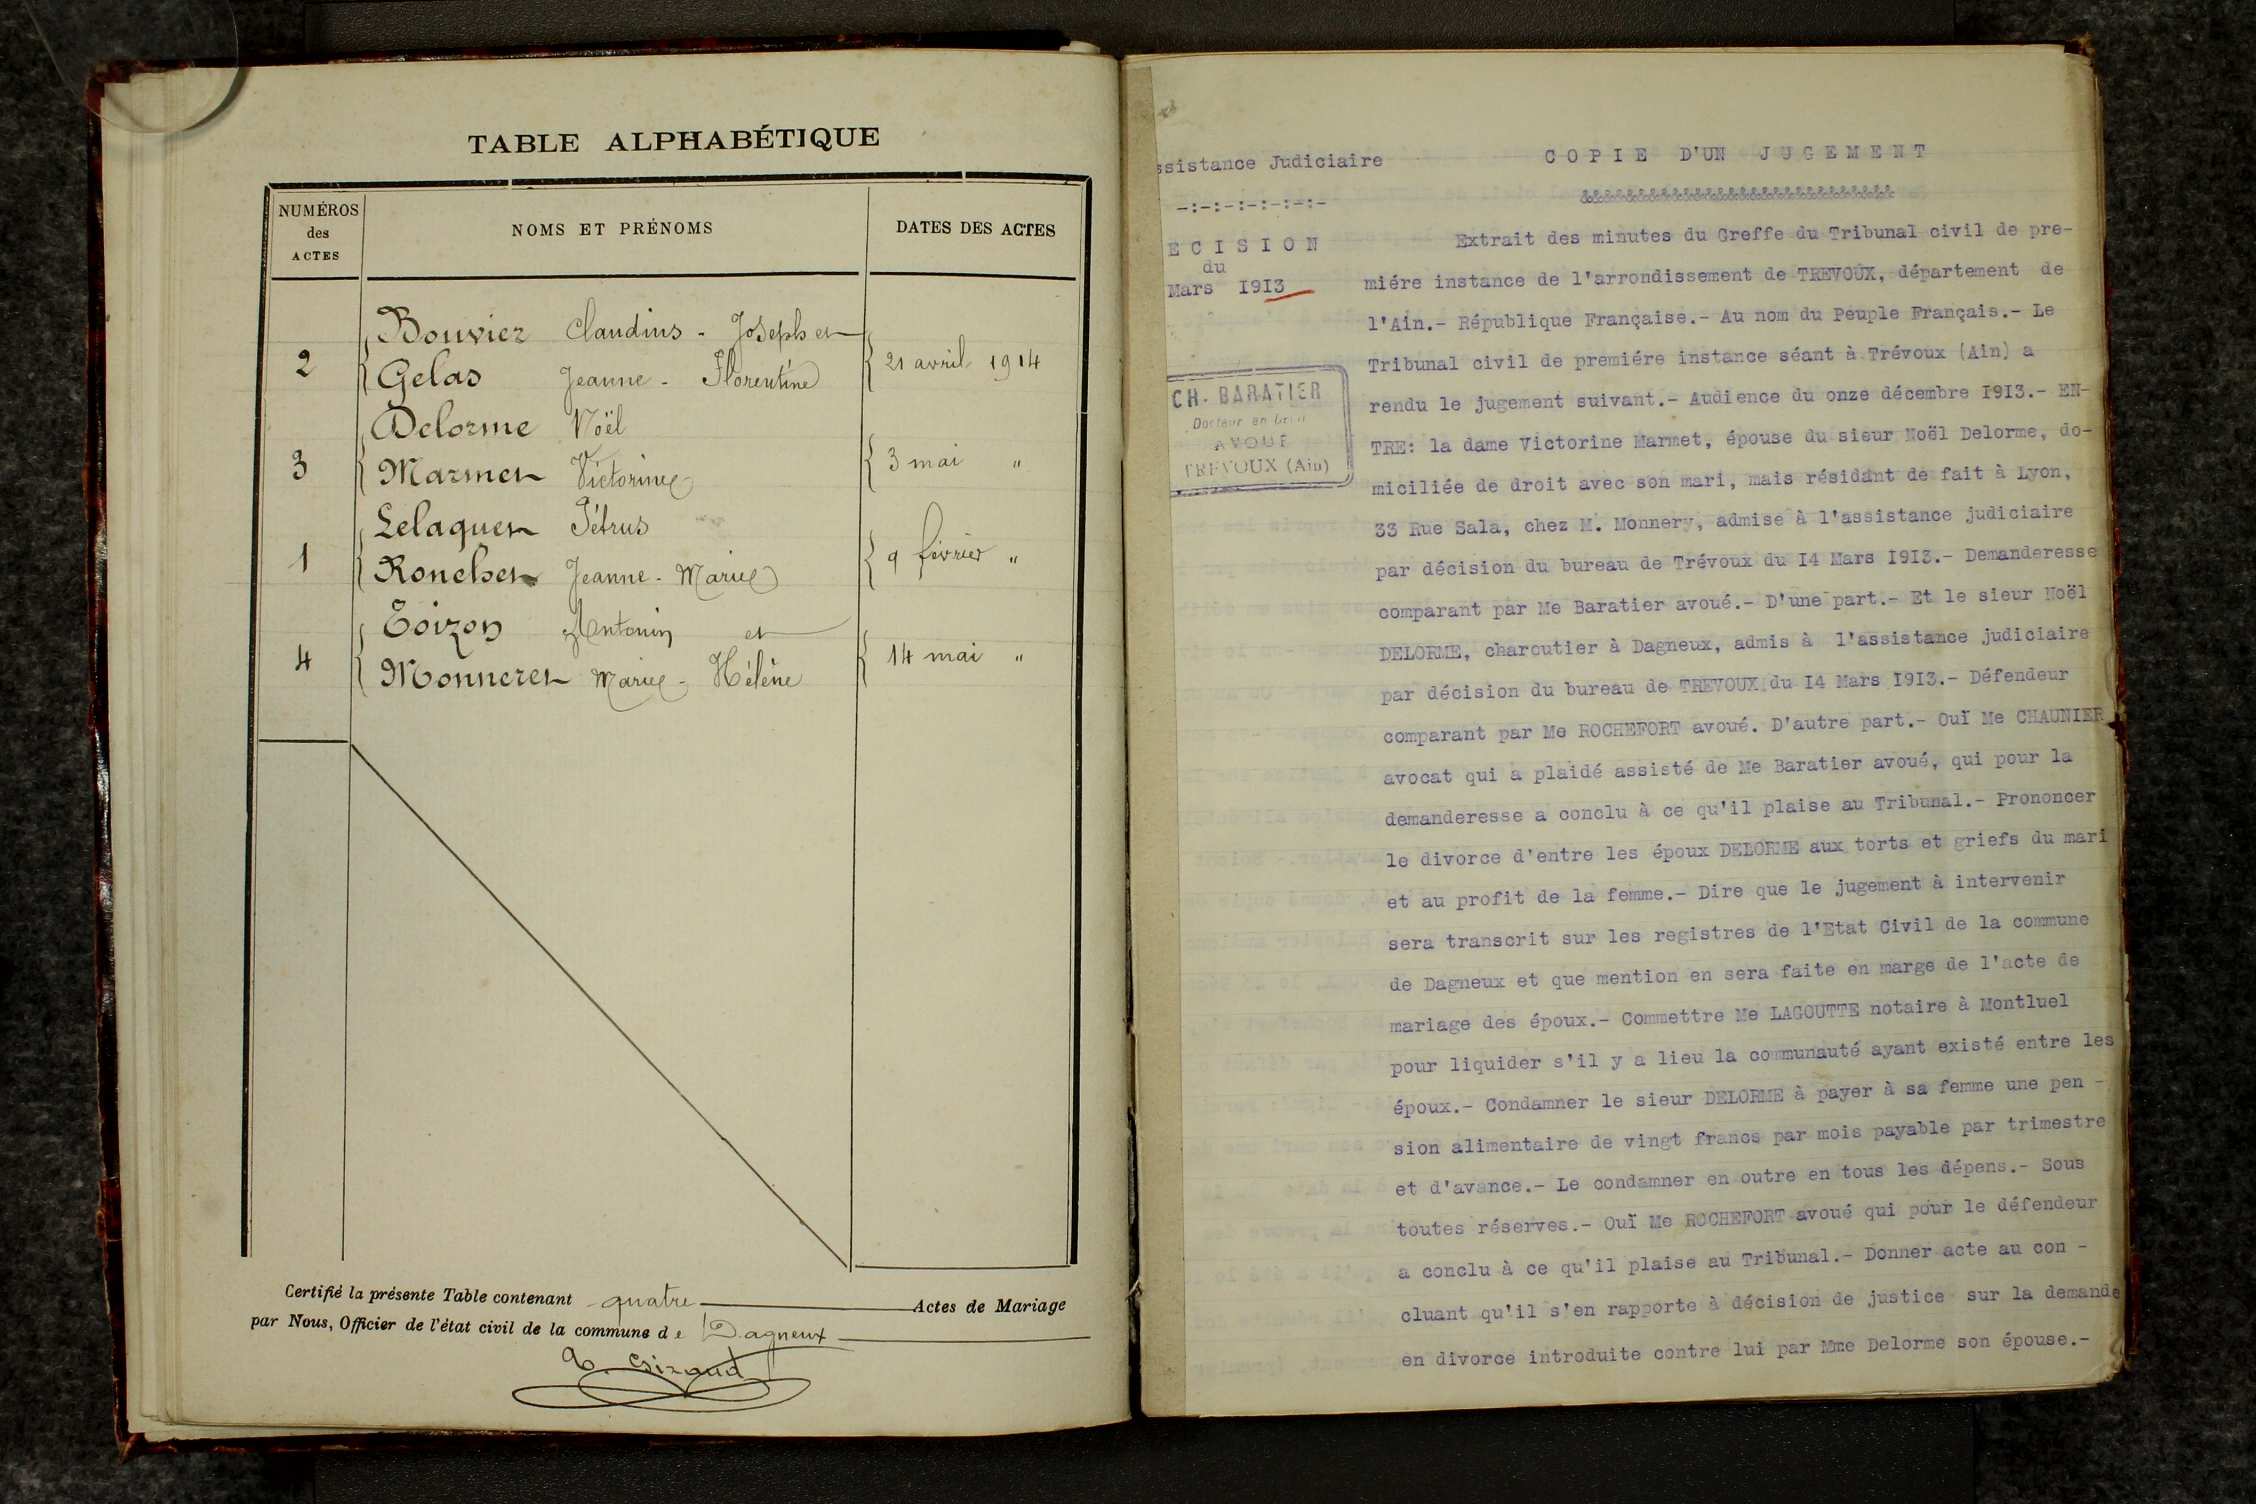 TABLE ALPHABÉTIQUE
NUMÉROS
des
ACTES
NOMS ET PRÉNOMS
DATES DES ACTES
Bouvier Claudius - Joseph et
2
Gelas Jeanne - Florentine
21 avril 1914
Delorme Noël
3
Marmet Victorine
3 mai "
Lelaquet Pétrus
1
Ronchet Jeanne - Marie
9 février "
Toizon Antonin et
4
Monneret Marie - Hélène
14 mai "
Certifié la présente Table contenant quatre Actes de Mariage
par Nous, Officier de l'état civil de la commune de Dagneux
ssistance Judiciaire
-:-:-:-:-:-:-:-
E C I S I O N
du
Mars 1913
CH. BARATIER
Docteur en Droit
AVOUÉ
TREVOUX (Ain)
C O P I E D'UN J U G E M E N T
Extrait des minutes du Greffe du Tribunal civil de pre-
miére instance de l'arrondissement de TREVOUX, département de
l'Ain.- République Française.- Au nom du Peuple Français.- Le
Tribunal civil de premiére instance séant à Trévoux (Ain) a
rendu le jugement suivant.- Audience du onze décembre I9I3.- EN-
TRE: la dame Victorine Marmet, épouse du sieur Noël Delorme, do-
miciliée de droit avec son mari, mais résidant de fait à Lyon,
33 Rue Sala, chez M. Monnery, admise à l'assistance judiciaire
par décision du bureau de Trévoux du I4 Mars I9I3.- Demanderesse
comparant par Me Baratier avoué.- D'une part.- Et le sieur Noël
DELORME, charcutier à Dagneux, admis à l'assistance judiciaire
par décision du bureau de TREVOUX du I4 Mars I9I3.- Défendeur
comparant par Me ROCHEFORT avoué. D'autre part.- Ouï Me CHAUNIER
avocat qui a plaidé assisté de Me Baratier avoué, qui pour la
demanderesse a conclu à ce qu'il plaise au Tribunal.- Prononcer
le divorce d'entre les époux DELORME aux torts et griefs du mari
et au profit de la femme.- Dire que le jugement à intervenir
sera transcrit sur les registres de l'Etat Civil de la commune
de Dagneux et que mention en sera faite en marge de l'acte de
mariage des époux.- Commettre Me LAGOUTTE notaire à Montluel
pour liquider s'il y a lieu la communauté ayant existé entre les
époux.- Condamner le sieur DELORME à payer à sa femme une pen -
sion alimentaire de vingt francs par mois payable par trimestre
et d'avance.- Le condamner en outre en tous les dépens.- Sous
toutes réserves.- Ouï Me ROCHEFORT avoué qui pour le défendeur
a conclu à ce qu'il plaise au Tribunal.- Donner acte au con -
cluant qu'il s'en rapporte à décision de justice sur la demande
en divorce introduite contre lui par Mme Delorme son épouse.-